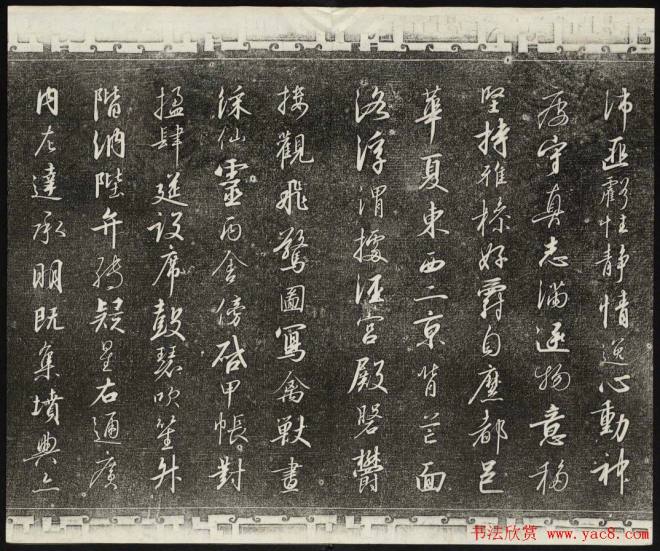 沛匪虧性静情逸心動神
疲守真志滿逐物意移
堅持雅操好爵自縻都邑
華夏東西二京背芒面
洛浮渭據涇宮殿磐鬱
樓觀飛驚圖寫禽獸畫
綵仙靈丙舍傍啓甲帳對
楹肆筵設席鼓瑟吹笙升
階納陛弁轉疑星右通廣
內左達承明既集墳典亦
书法欣赏 www.yac8.com